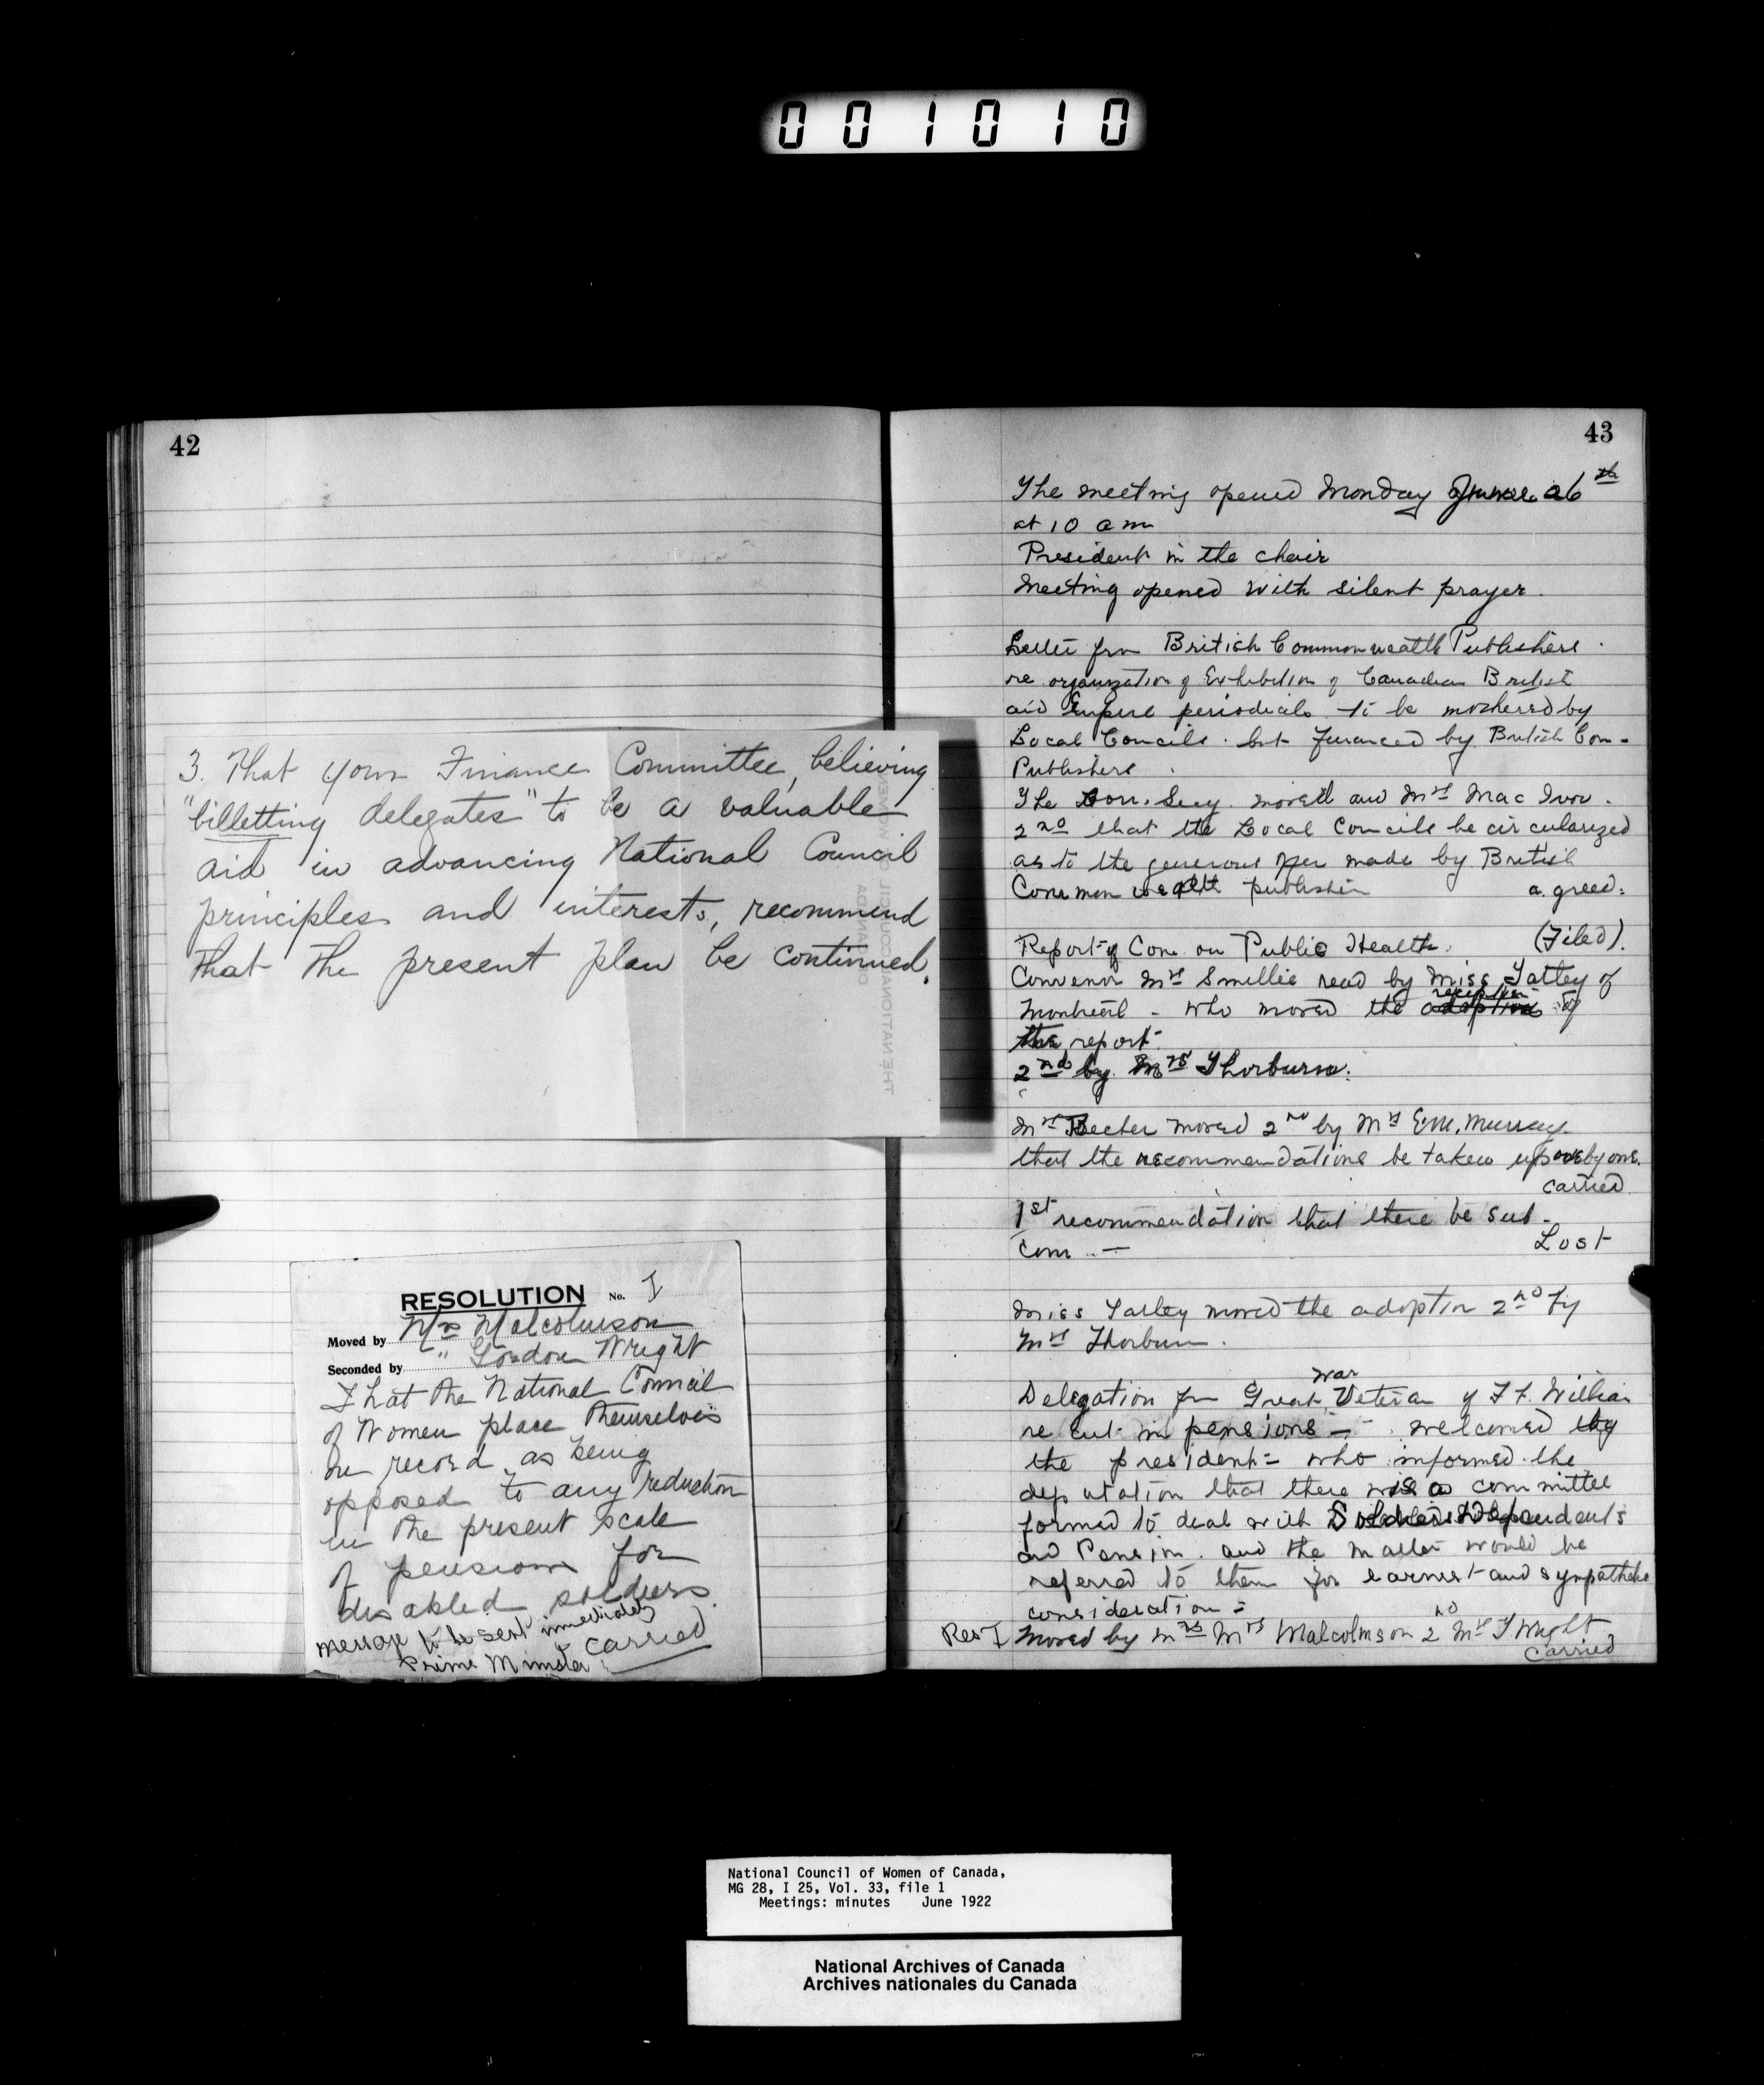 001010
42
3. That your Finance Committee, believing
"billetting delegates" to be a valuable
aid in advancing National Council
principles and interests, recommend
that the present plan be continued.
THE NATIONAL COUNCIL OF WOMEN
OF CANADA
RESOLUTION No. I
Moved by Mrs Malcolmson
Seconded by " Gordon Wright
That the National Council
of Women place themselves
on record as being
opposed to any reduction
in the present scale
of pensions for
disabled soldiers.
message to be sent immediately
Prime Minister carried
43
The meeting opened Monday June 26th
at 10 am
President in the chair
Meeting opened with silent prayer.
Letter from British Commonwealth Publishers
re organization of Exhibition of Canadian British
and Empire periodicals to be mothered by
Local Councils but financed by British Com-
Publishers
The Corr. Secy. moved and Mrs Mac Ivor.
2nd that the Local Councils be circularized
as to the generous offer made by British
Common wealth publisher agreed:
Report of Com on Public Health. (Filed).
Convenor Mrs Smellie read by Miss Tatley of
Montreal - who moved the adoption reception of
the report.
2nd by Mrs Thorburn.
Mrs moved 2nd by Mrs E.M. Murray
that the recommendations be taken up one by one.
carried
1st recommendation that there be sub-
com - Lost
Miss Tatley moved the adoption 2nd by
Mrs Thorburn.
Delegation fr Great war Veteran of Ft. William
re cut in pensions - welcomed by
the president - who informed the
deputation that there was a committee
formed to deal with Soldiers Dependents
and Pension. and the matter would be
referred to them for earnest and sympathetic
consideration =
Res I Moved by Mrs Mrs Malcolmson 2nd Mrs G Wright
Carried
National Council of Women of Canada,
MG 28, I 25, Vol. 33, file 1
Meetings: minutes June 1922
National Archives of Canada
Archives nationales du Canada